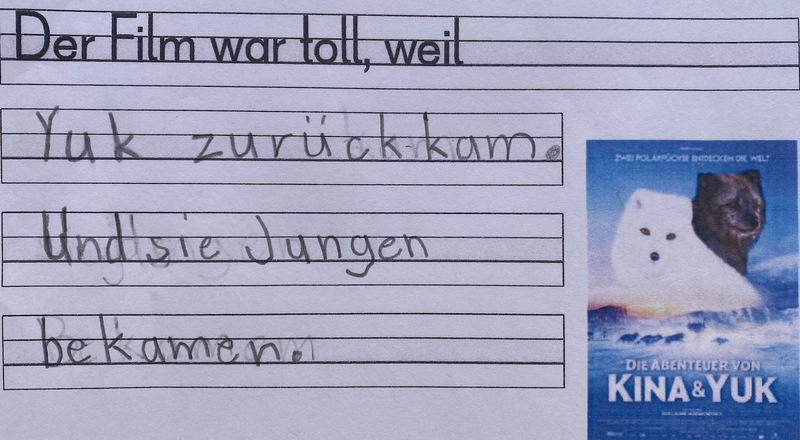 Der Film war toll, weil
Yuk zurückkam.
Und sie Jungen
bekamen.
ZWEI POLARFÜCHSE ENTDECKEN DIE WELT
DIE ABENTEUER VON
KINA & YUK